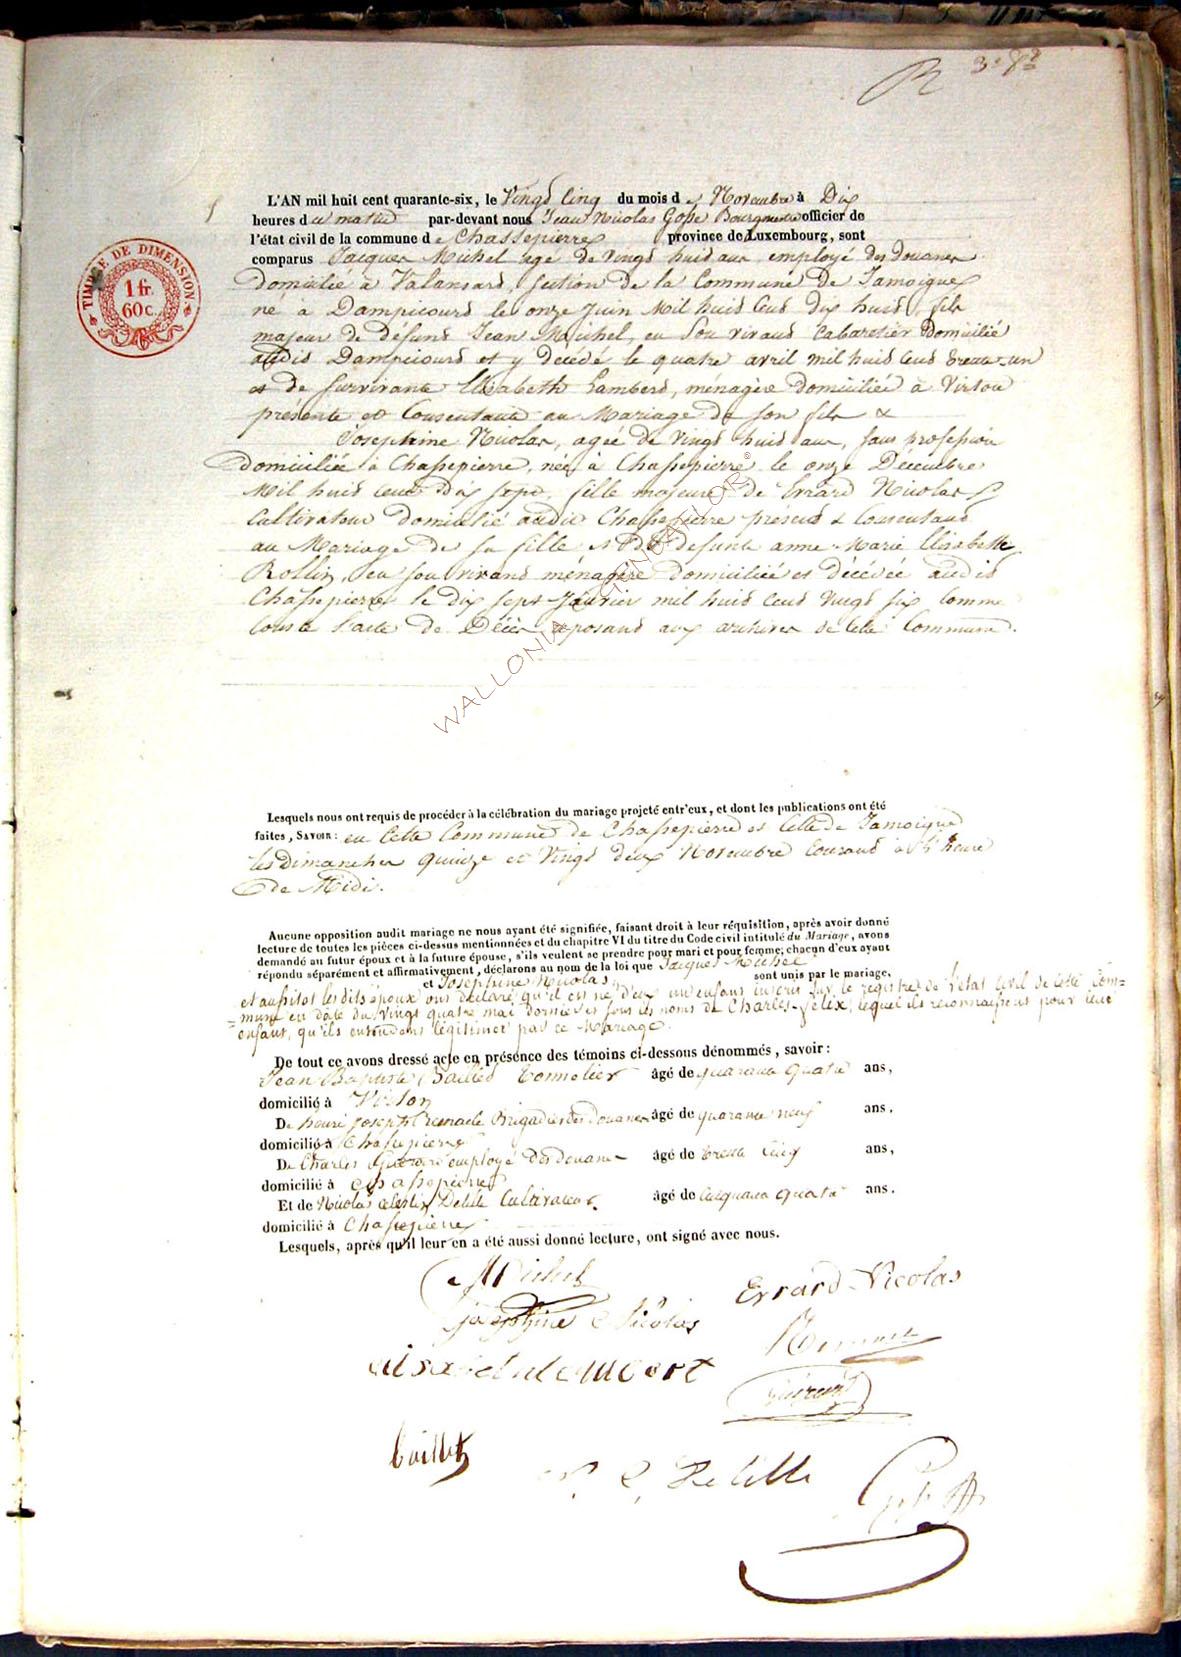 3e 8e
L'AN mil huit cent quarante-six, le Vingt Cinq du mois de Novembre à Dix
heures du matin par-devant nous Jean Nicolas Gofse Bourgmestre officier de
l'état civil de la commune de Chassepierre province de Luxembourg, sont
comparus Jacques Michel agé de vingt huit ans, employé des douanes
domicilié à Valansard, section de la Commune de Jamoigne
né à Dampicourt le onze Juin Mil huit Cent dix huit, fils
majeur de défunt Jean Michel, en Son vivant Cabaretier Domicilié
audit Dampicourt et y décédé le quatre avril mil huit Cent trente-un
et de survivante Elisabeth Lambert, ménagère domiciliée à Virton
présente et Consentante au Mariage de son fils &
Josephine Nicolas, agée de Vingt huit ans, sans profession
domiciliée à Chassepierre, née à Chassepierre le onze Décembre
Mil huit Cent dix sept, fille majeure de Errard Nicolas
Cultivateur domicilié audit Chassepierre présent & Consentant
au Mariage de sa fille et de défunte anne-Marie Elisabeth
Rollin, en son vivant ménagère domiciliée et décédée audit
Chassepierre le dix sept Janvier mil huit Cent vingt six Comme
Conste l'acte de Décès reposant aux archives de Cette Commune.
WALLONIA GENEAFLOR ©
Lesquels nous ont requis de procéder à la célébration du mariage projeté entr'eux, et dont les publications ont été
faites, SAVOIR: en Cette Commune de Chassepierre et Celle de Jamoigne
les Dimanches quinze et Vingt deux Novembre Courant à l'heure
de Midi.
Aucune opposition audit mariage ne nous ayant été signifiée, faisant droit à leur réquisition, après avoir donné
lecture de toutes les pièces ci-dessus mentionnées et du chapitre VI du titre du Code civil intitulé du Mariage, avons
demandé au futur époux et à la future épouse, s'ils veulent se prendre pour mari et pour femme; chacun d'eux ayant
répondu séparément et affirmativement, déclarons au nom de la loi que Jacques Michel
et Josephine Nicolas, sont unis par le mariage.
et aussitot les dits époux ont déclaré qu'il est né d'eux un enfant inscrit sur le registre de l'état Civil de cette Com-
=mune en date du vingt quatre mai dernier et sous les noms de Charles-felix, lequel ils reconnaissent pour leur
enfant, qu'ils entendent légitimer par ce Mariage.
De tout ce avons dressé acte en présence des témoins ci-dessous dénommés, savoir:
Jean Baptiste Baillet tonnelier âgé de quarante quatre ans,
domicilié à Virton
De henri joseph Remacle Brigadier des Douanes âgé de quarante neuf ans,
domicilié à Chassepierre
De Charles Guerard employé des Douanes âgé de trente Cinq ans,
domicilié à Chassepierre
Et de Nicolas Celestin Delille Cultivateur âgé de Cinquante quatre ans.
domicilié à Chassepierre
Lesquels, après qu'il leur en a été aussi donné lecture, ont signé avec nous.
Michel
Errard Nicolas
josephine Nicolas
Baillet
N. C. Delille
TIMBRE DE DIMENSION.
1 fr.
60 c.